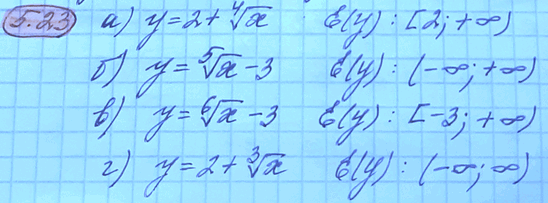 5.23 а) y = 2 + ⁴√x E(y) : [2; +∞)
б) y = ⁵√x - 3 E(y) : (-∞; +∞)
в) y = ⁶√x - 3 E(y) : [-3; +∞)
г) y = 2 + ³√x E(y) : (-∞; ∞)